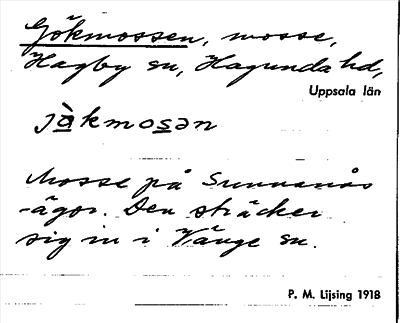 Gökmossen, mosse,
Hagby sn, Hagunda hd,
Uppsala län
jö̀kmosən
Mosse på Sunnanås
-ägor. Den sträcker
sig in i Vänge sn.
P. M. Lijsing 1918